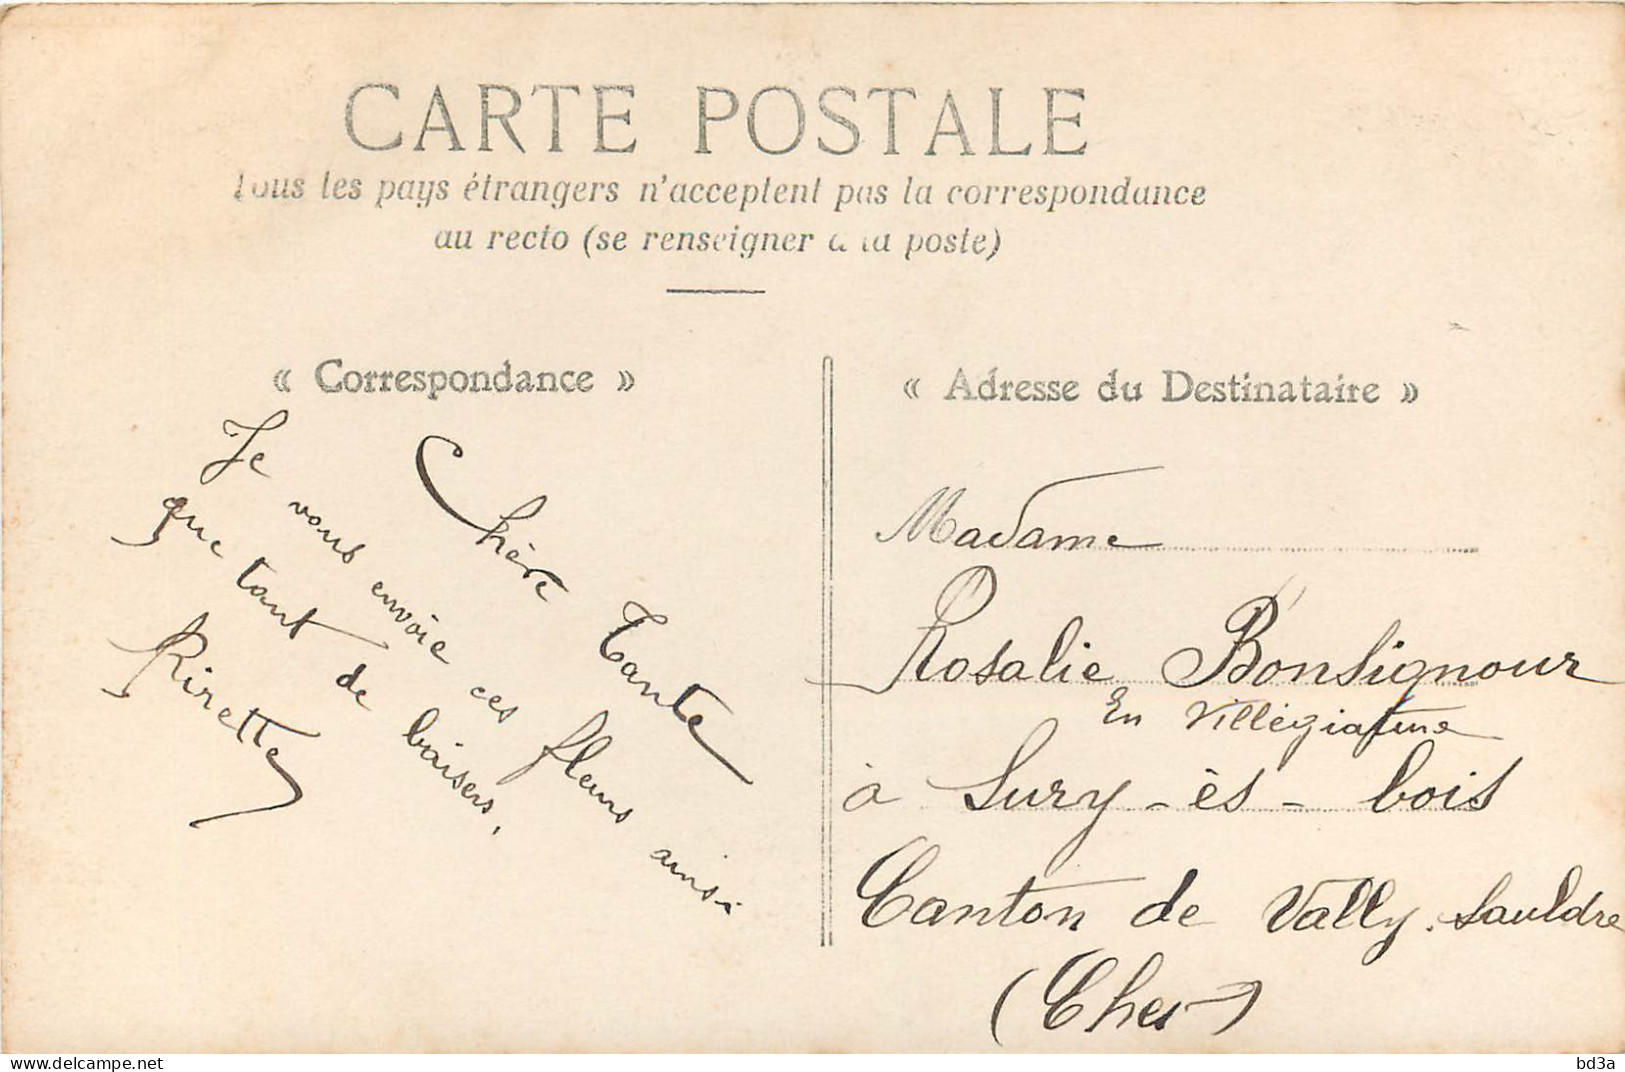 CARTE POSTALE
Tous les pays étrangers n'acceptent pas la correspondance
au recto (se renseigner à la poste)
« Correspondance »
Chère Tante
Je vous envoie ces fleurs ainsi
que tant de baisers,
Rirette
« Adresse du Destinataire »
Madame
Rosalie Bonsignour
En Villégiature
à Sury-ès-bois
Canton de Vally. Sauldre
(Cher)
bd3a